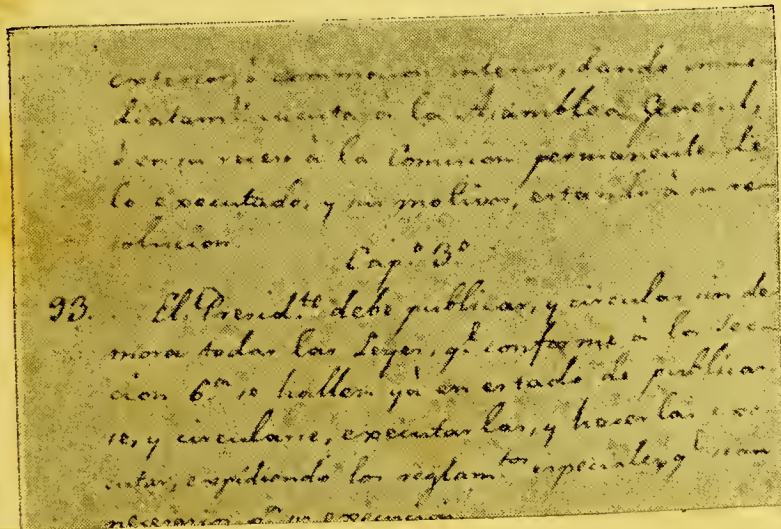 exterior, ó commocion interior, dando imme
diatam.te cuenta à la Asamblea General,
ò en su receso à la Comision permanente de
lo executado, y sus motivos, estando à su re
solucion
Cap.º 3º
93. El Presid.te debe publicar, y circular sin de
mora todas las Leyes, q.e conforme à la Sec
cion 6.a se hallen yà en estado de publicar
se, y circularse, executarlas, y hacerlas exe
cutar, expidiendo los reglam.tos especiales q.e sean
necesarios p.a su execucion